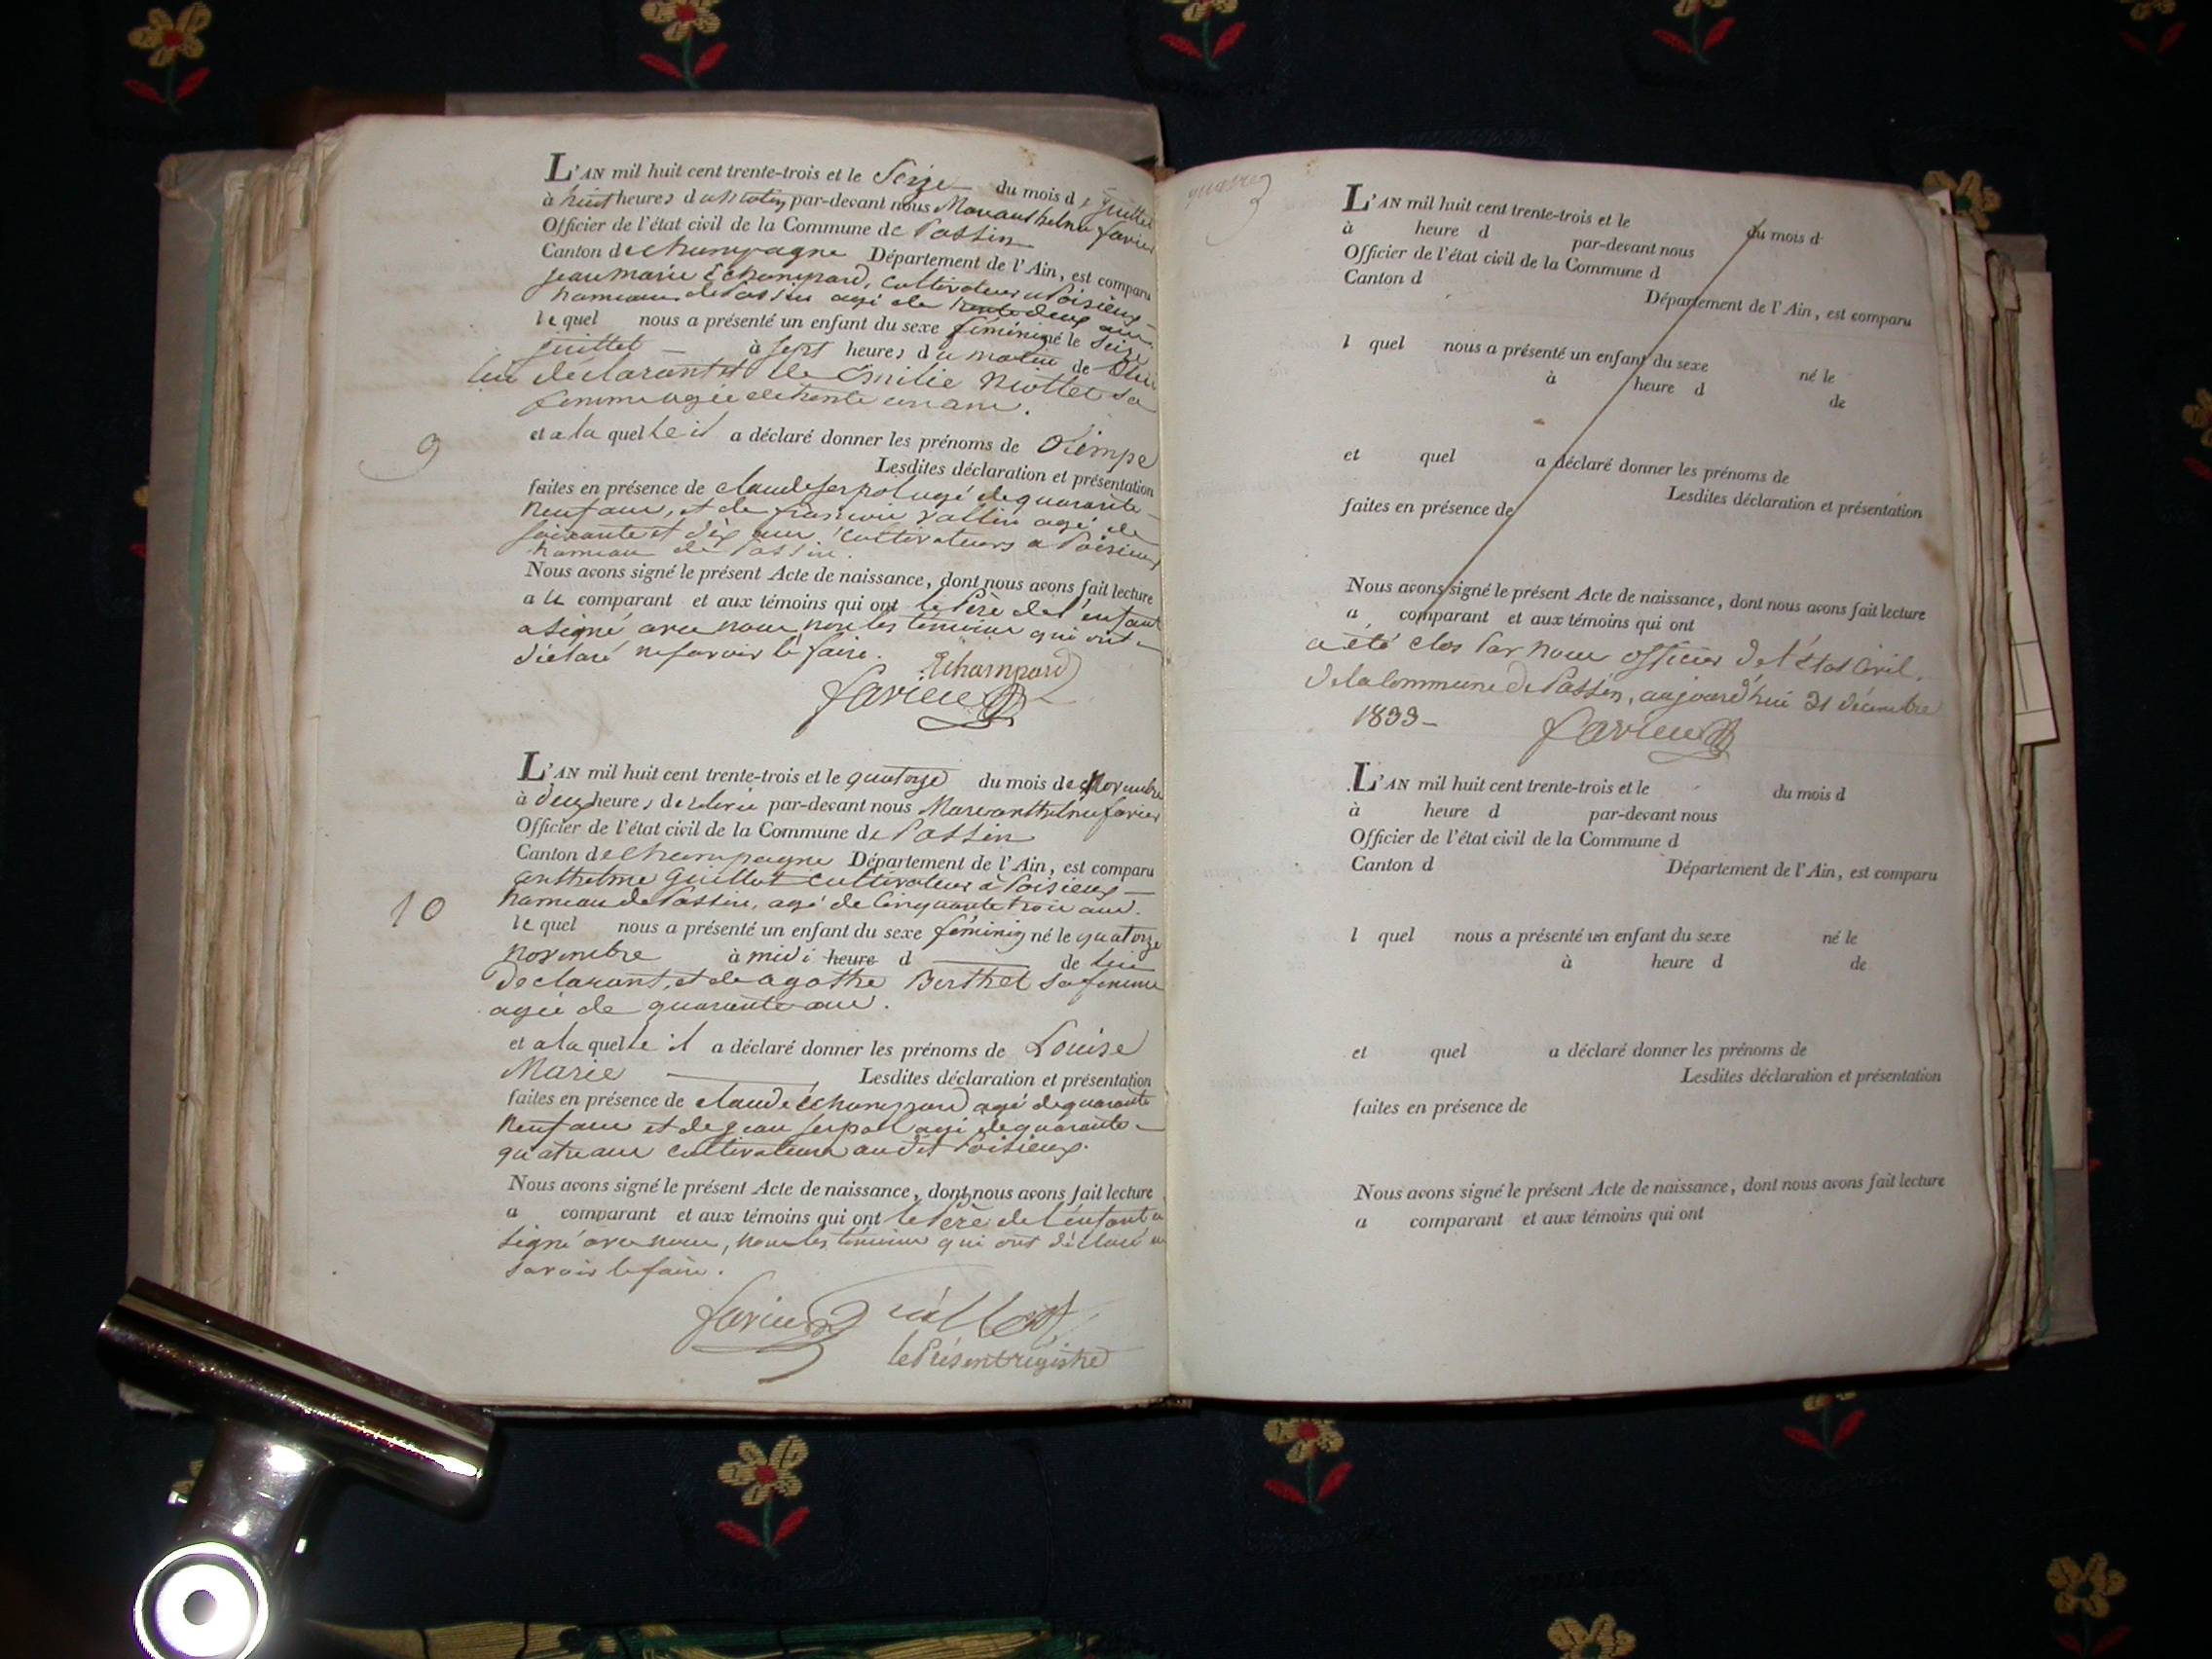 L'AN mil huit cent trente-trois et le Seize du mois de juillet
à huit heures du matin par-devant nous Marc anthelme favier
Officier de l'état civil de la Commune de Passin
Canton de champagne Département de l'Ain, est comparu
jean marie Echampard, cultivateur a Poisieux
hameau de Passin agé de trente deux ans
lequel nous a présenté un enfant du sexe féminin né le seize
juillet à sept heures du matin de lui
déclarant et de Emilie Miottet sa
femme agée de trente un ans.
9
et a la quelle il a déclaré donner les prénoms de Olimpe
Lesdites déclaration et présentation
faites en présence de claude serpol agé de quarante
neuf ans, et de françois vallin agé de
soixante et dix ans, cultivateurs a Poisieux
hameau de Passin.
Nous avons signé le présent Acte de naissance, dont nous avons fait lecture
a u comparant et aux témoins qui ont le Père de l'enfant
a signé avec nous non les témoins qui ont
déclaré ne savoir le faire.
Echampard
favier
L'AN mil huit cent trente-trois et le quatorze du mois de Novembre
à deux heures de relevée par-devant nous Marc anthelme favier
Officier de l'état civil de la Commune de Passin
Canton de champagne Département de l'Ain, est comparu
anthelme Guillot cultivateur à Poisieux
hameau de Passin, agé de cinquante trois ans.
10
lequel nous a présenté un enfant du sexe féminin né le quatorze
novembre à midi heure d de lui
declarant, et de agathe Berthet sa femme
agée de quarante ans.
et a la quelle il a déclaré donner les prénoms de Louise
Marie Lesdites déclaration et présentation
faites en présence de claude Echampard agé de quarante
neuf ans et de jean serpol agé de quarante
quatre ans cultivateurs audit Poisieux.
Nous avons signé le présent Acte de naissance, dont nous avons fait lecture
a comparant et aux témoins qui ont le Père de l'enfant a
signé avec nous, non les témoins qui ont déclaré ne
savoir le faire.
favier Guillot
le Présent registre
L'AN mil huit cent trente-trois et le du mois d
à heure d par-devant nous
Officier de l'état civil de la Commune d
Canton d
Département de l'Ain, est comparu
l quel nous a présenté un enfant du sexe né le
à heure d de
et quel a déclaré donner les prénoms de
Lesdites déclaration et présentation
faites en présence de
Nous avons signé le présent Acte de naissance, dont nous avons fait lecture
a comparant et aux témoins qui ont
a été clos Par nous officier de l'état Civil,
de la Commune de Passin, aujourd'hui 31 décembre
1833
favier
L'AN mil huit cent trente-trois et le du mois d
à heure d par-devant nous
Officier de l'état civil de la Commune d
Canton d Département de l'Ain, est comparu
l quel nous a présenté un enfant du sexe né le
à heure d de
et quel a déclaré donner les prénoms de
Lesdites déclaration et présentation
faites en présence de
Nous avons signé le présent Acte de naissance, dont nous avons fait lecture
a comparant et aux témoins qui ont